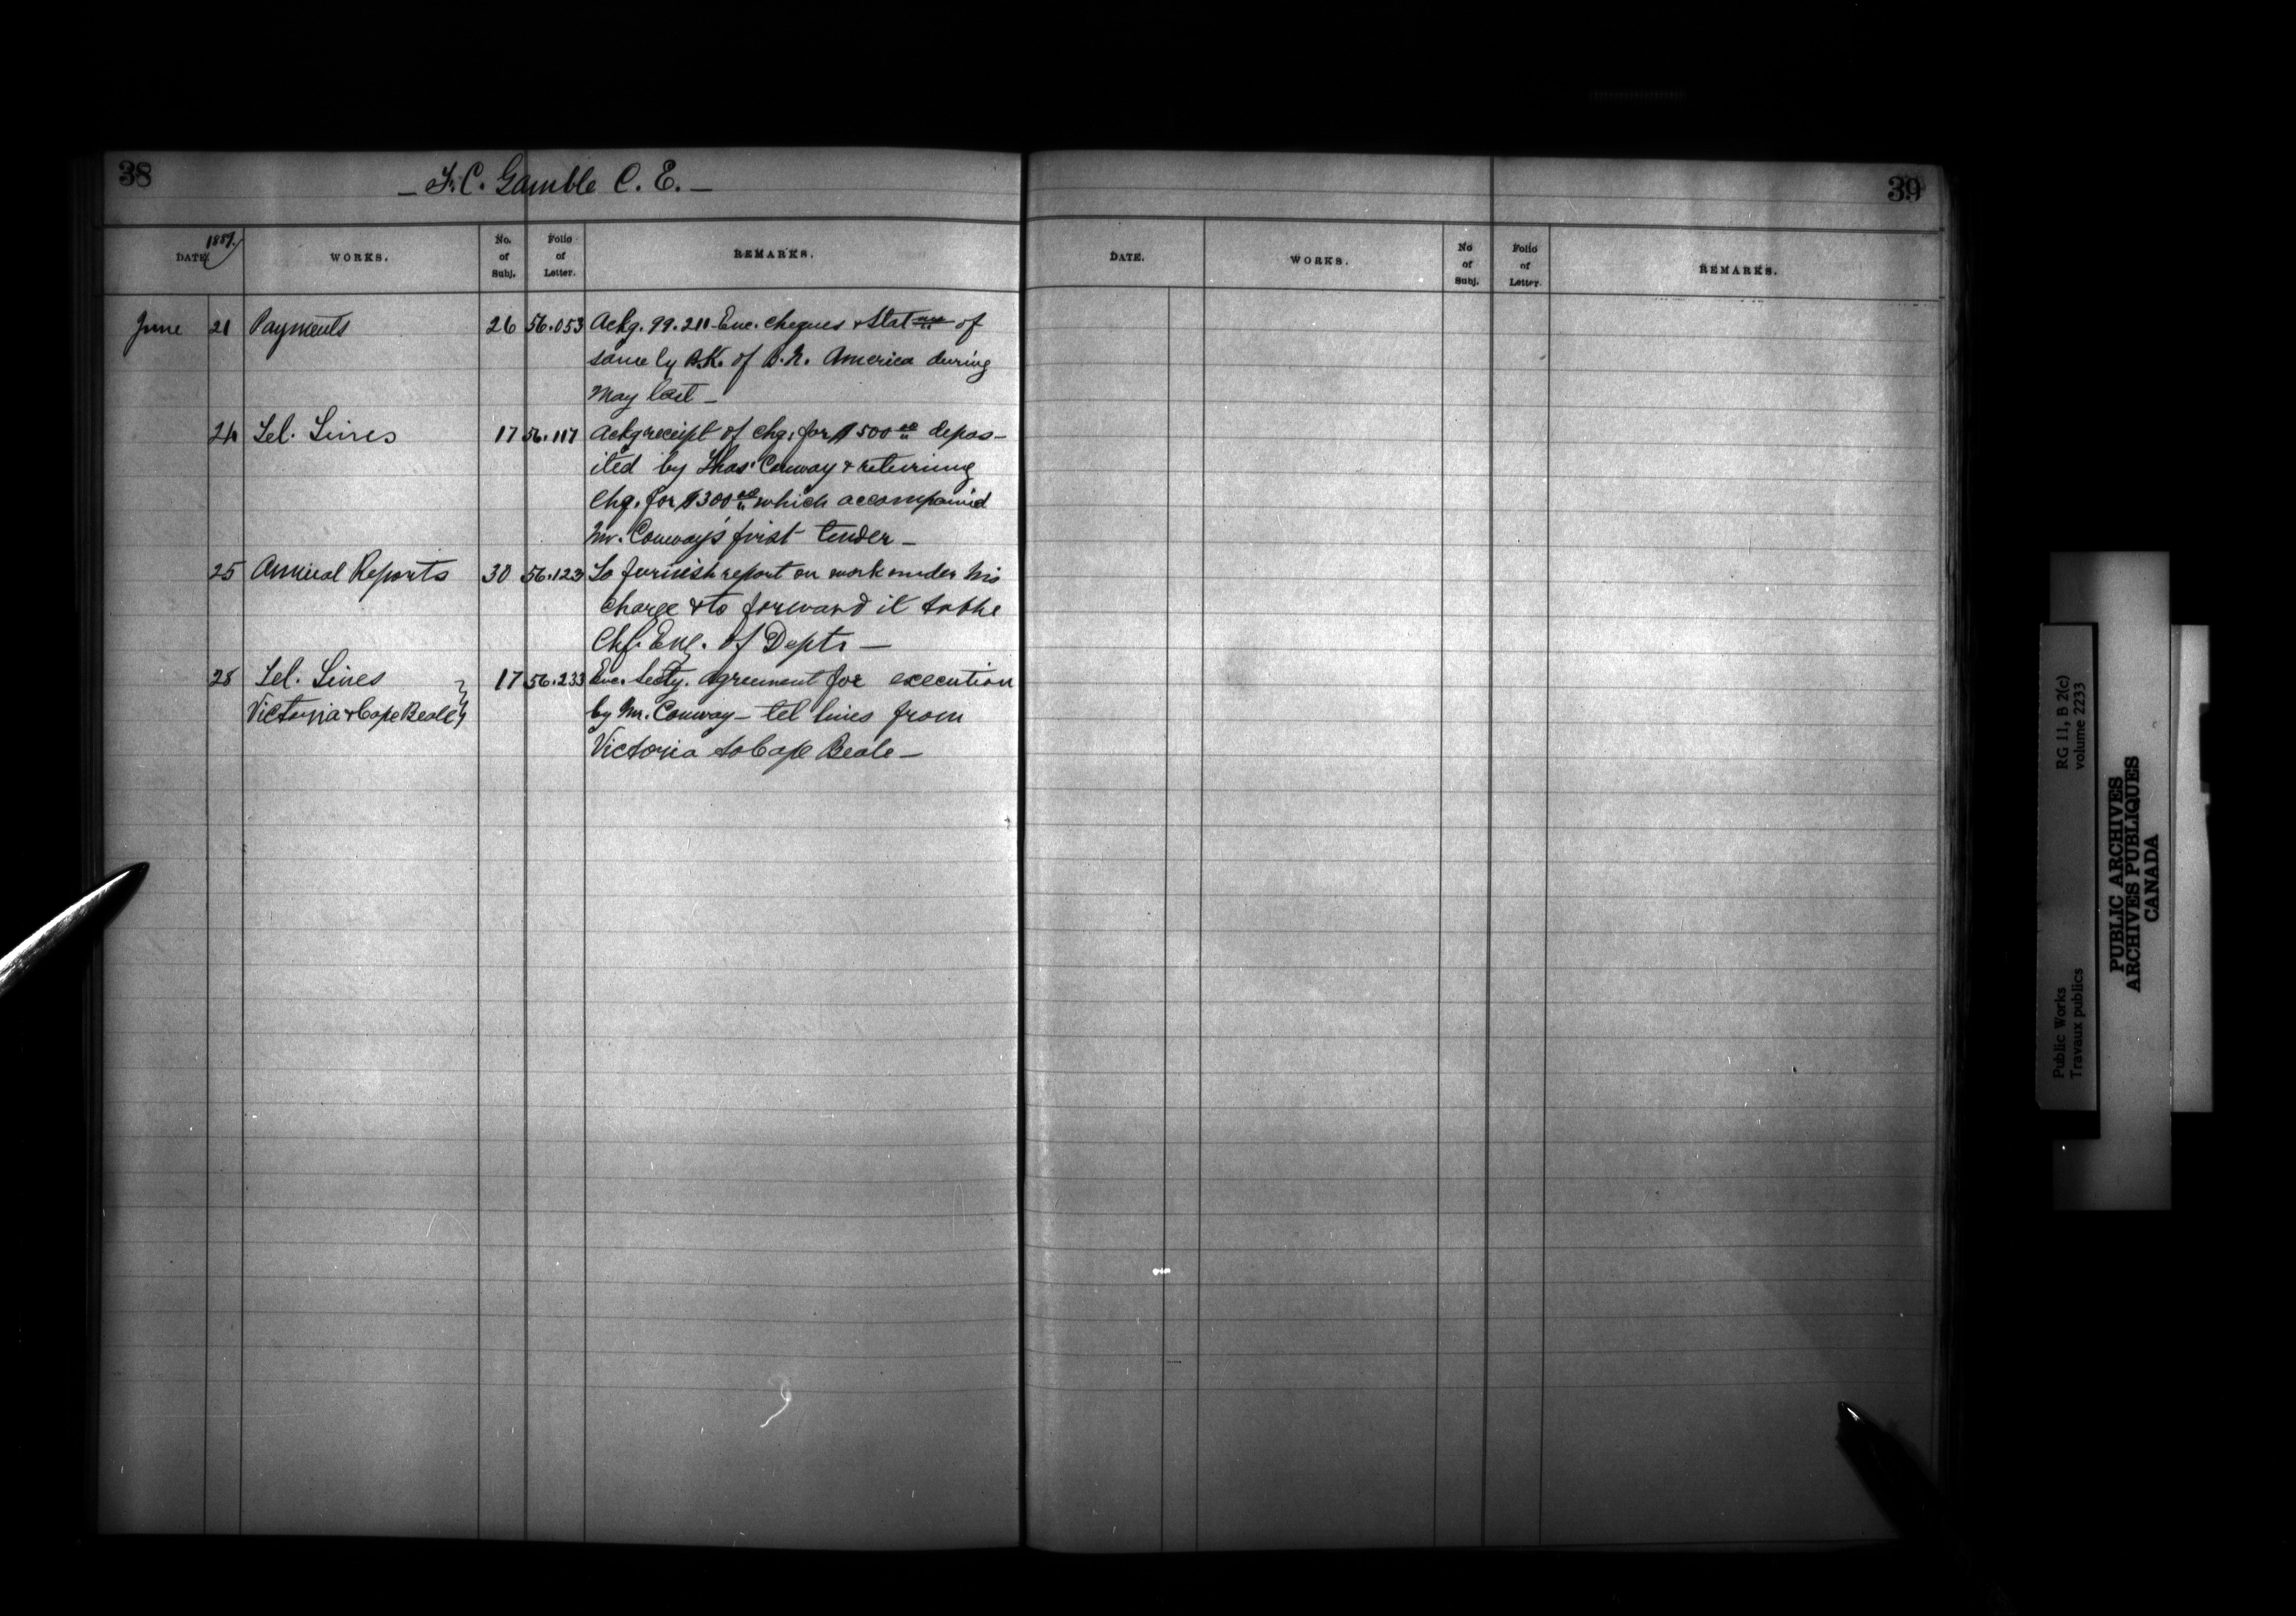 38
— F. C. Gamble C. E. —
DATE. 1889. WORKS. No. of Subj. Folio of Letter. REMARKS.
June 21 Payments 26 56.053 Ackg. 99.211 Enc. cheques & Statmt of
same by B.K. of B. N. America during
May last —
24 Tel. Lines 17 56.117 Ackg receipt of chq. for $500 00 depos-
ited by Thos. Conway & returning
Chq. for $300 00 which accompanied
Mr. Conway's first tender —
25 Annual Reports 30 56.123 To furnish report on work under his
charge & to forward it to the
Chf. Eng. of Depts —
28 Tel. Lines 17 56.233 Enc. Secty. agreement for execution
Victoria & Cape Beale by Mr. Conway — tel lines from
Victoria to Cape Beale —
39
DATE. WORKS. No of Subj. Folio of Letter. REMARKS.
Public Works
Travaux publics
RG 11, B 2(c)
volume 2233
PUBLIC ARCHIVES
ARCHIVES PUBLIQUES
CANADA